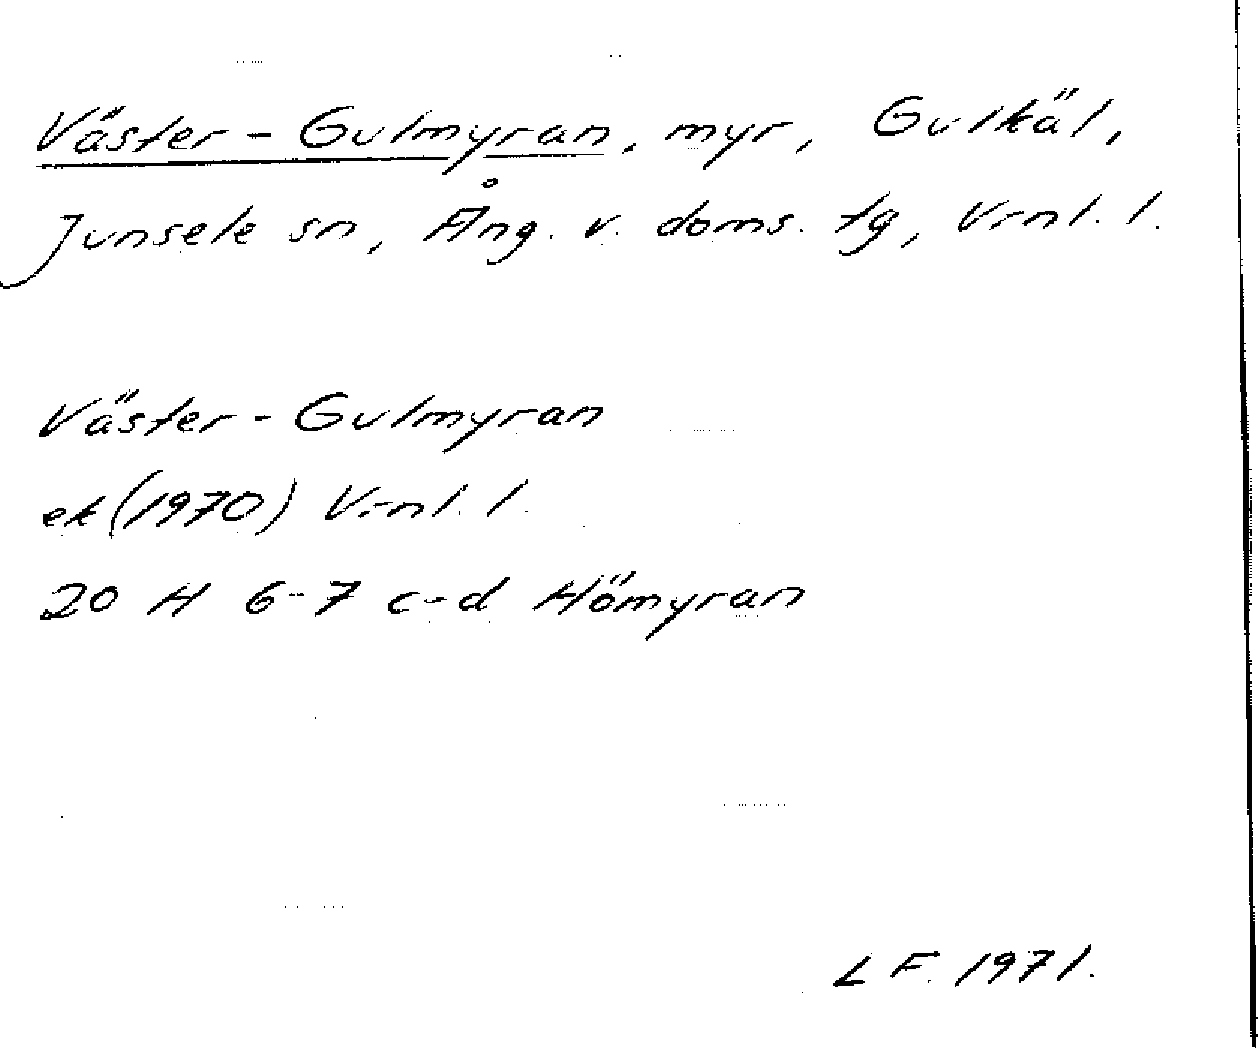 Väster-Gulmyran, myr, Gulkäl,
Junsele sn, Ång. v. doms. tg, Vrnl. l.
Väster-Gulmyran
ek (1970) Vrnl. l.
20 H 6-7 c-d Hömyran
LF. 1971.